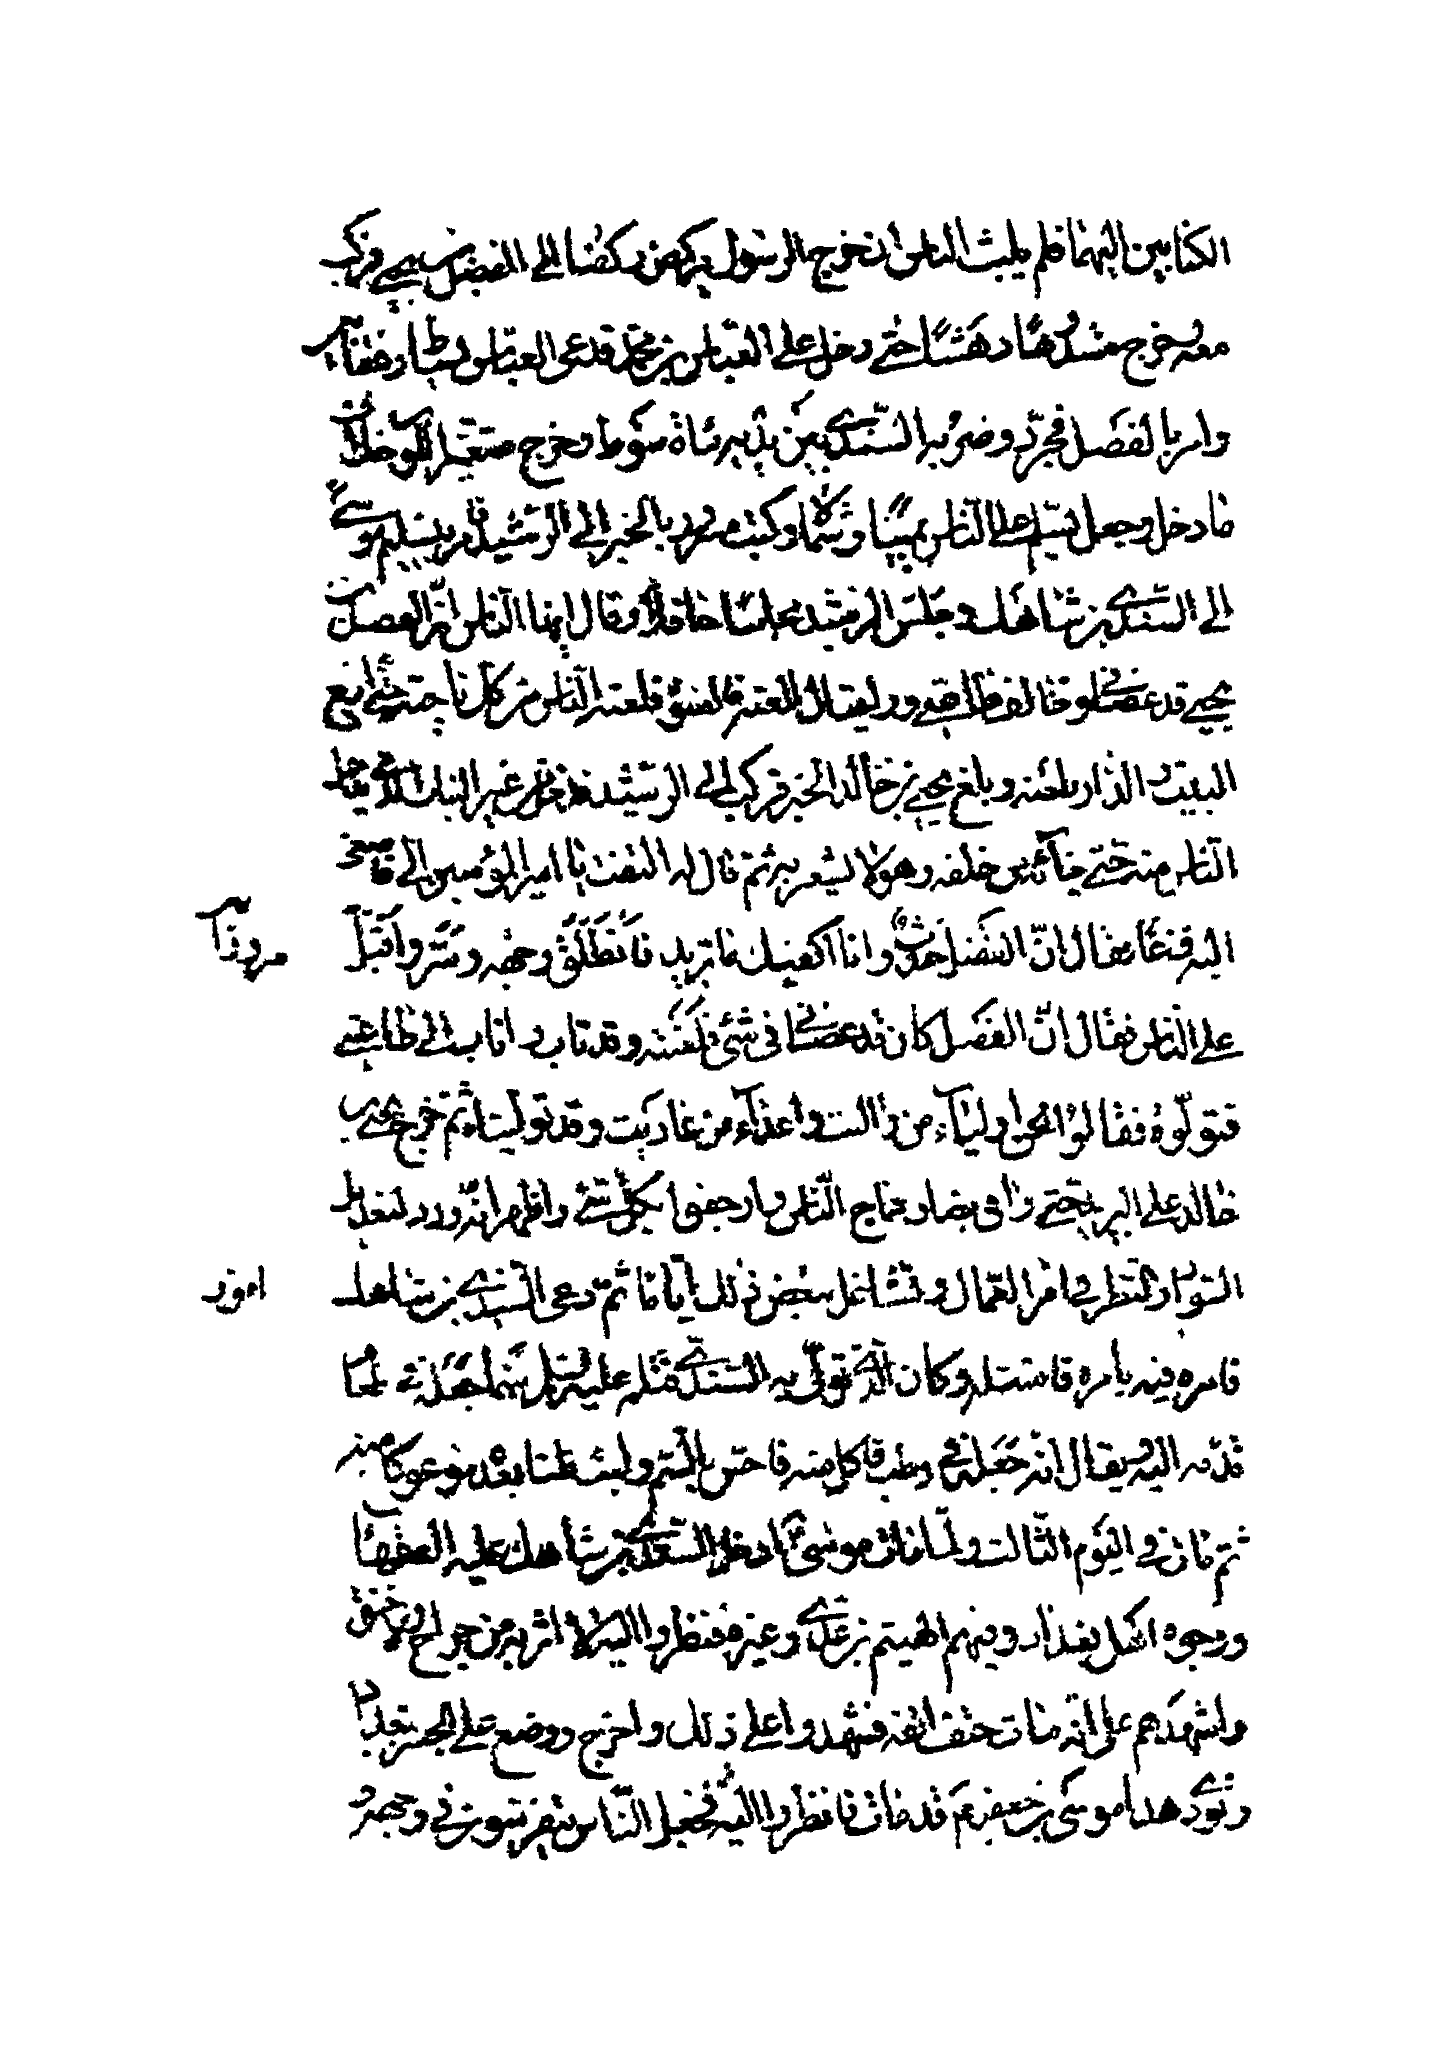 الكتابين اليهما فلم يلبث الناس ان خرج الرسول يركض ركضا الى الفضل بن يحيى فركب
معه وخرج مشدوها دهشا حتى دخل على العباس بن محمد فدعى العباس بسياط وعقابين
وامر بالفضل فجرّد وضربه السندي بين يديه مائة سوط وخرج متغير اللون خلاف
ما دخل وجعل يسلم على الناس يمينا وشمالا وكتب مسرور بالخبر الى الرشيد فامر بتسليم موسى
الى السندي بن شاهك وجلس الرشيد مجلسا حافلا وقال ايها الناس ان الفضل بن
يحيى قد عصاني وخالف طاعتي ورايت ان العنه فالعنوه فلعنه الناس من كل ناحية حتى ارتج
البيت والدار بلعنه وبلغ يحيى بن خالد الخبر فركب الى الرشيد فدخل من غير الباب الذي يدخل
الناس منه حتى جائه من خلفه وهو لا يشعر به ثم قال له التفت يا امير المؤمنين الي فاصغى
اليه فزعا فقال انّ الفضل حدث وانا اكفيك ما تريد فانطلق وجهه وسّر واقبل
على الناس فقال انّ الفضل كان قد عصاني في شيء فلعنته وقد تاب واناب الى طاعتي
فتولّوه فقالوا نحن اولياء من واليت واعداء من عاديت وقد توليناه ثم خرج يحيى بن
خالد على البريد حتى وافى بغداد فماج الناس وارجفوا بكل شيء واظهر انه ورد لتعديل
السواد والنظر في امر العمال وتشاغل ببعض ذلك اياما ثم دعى السندي بن شاهك
امور
فامره فيه بامره فامتثله وكان الذي تولّى به السندي قتله عليه السلام سمّا جعله في طعام
قدّمه اليه ويقال انه جعله في رطب فاكل منه فاحس بالسم ولبث ثلثا بعده موعوكا منه
ثم مات في اليوم الثالث ولما مات موسى ع ادخل السندي بن شاهك عليه الفقهاء
ووجوه اهل بغداد وفيهم الهيثم بن عدي وغيره فنظروا اليه لا اثر به من جراح ولا خنق
واشهدهم على انه مات حتف انفه فشهدوا على ذلك واخرج ووضع على الجسر ببغداد
ونودي هذا موسى بن جعفر عم قد مات فانظروا اليه فجعل الناس يتفرسون في وجهه و